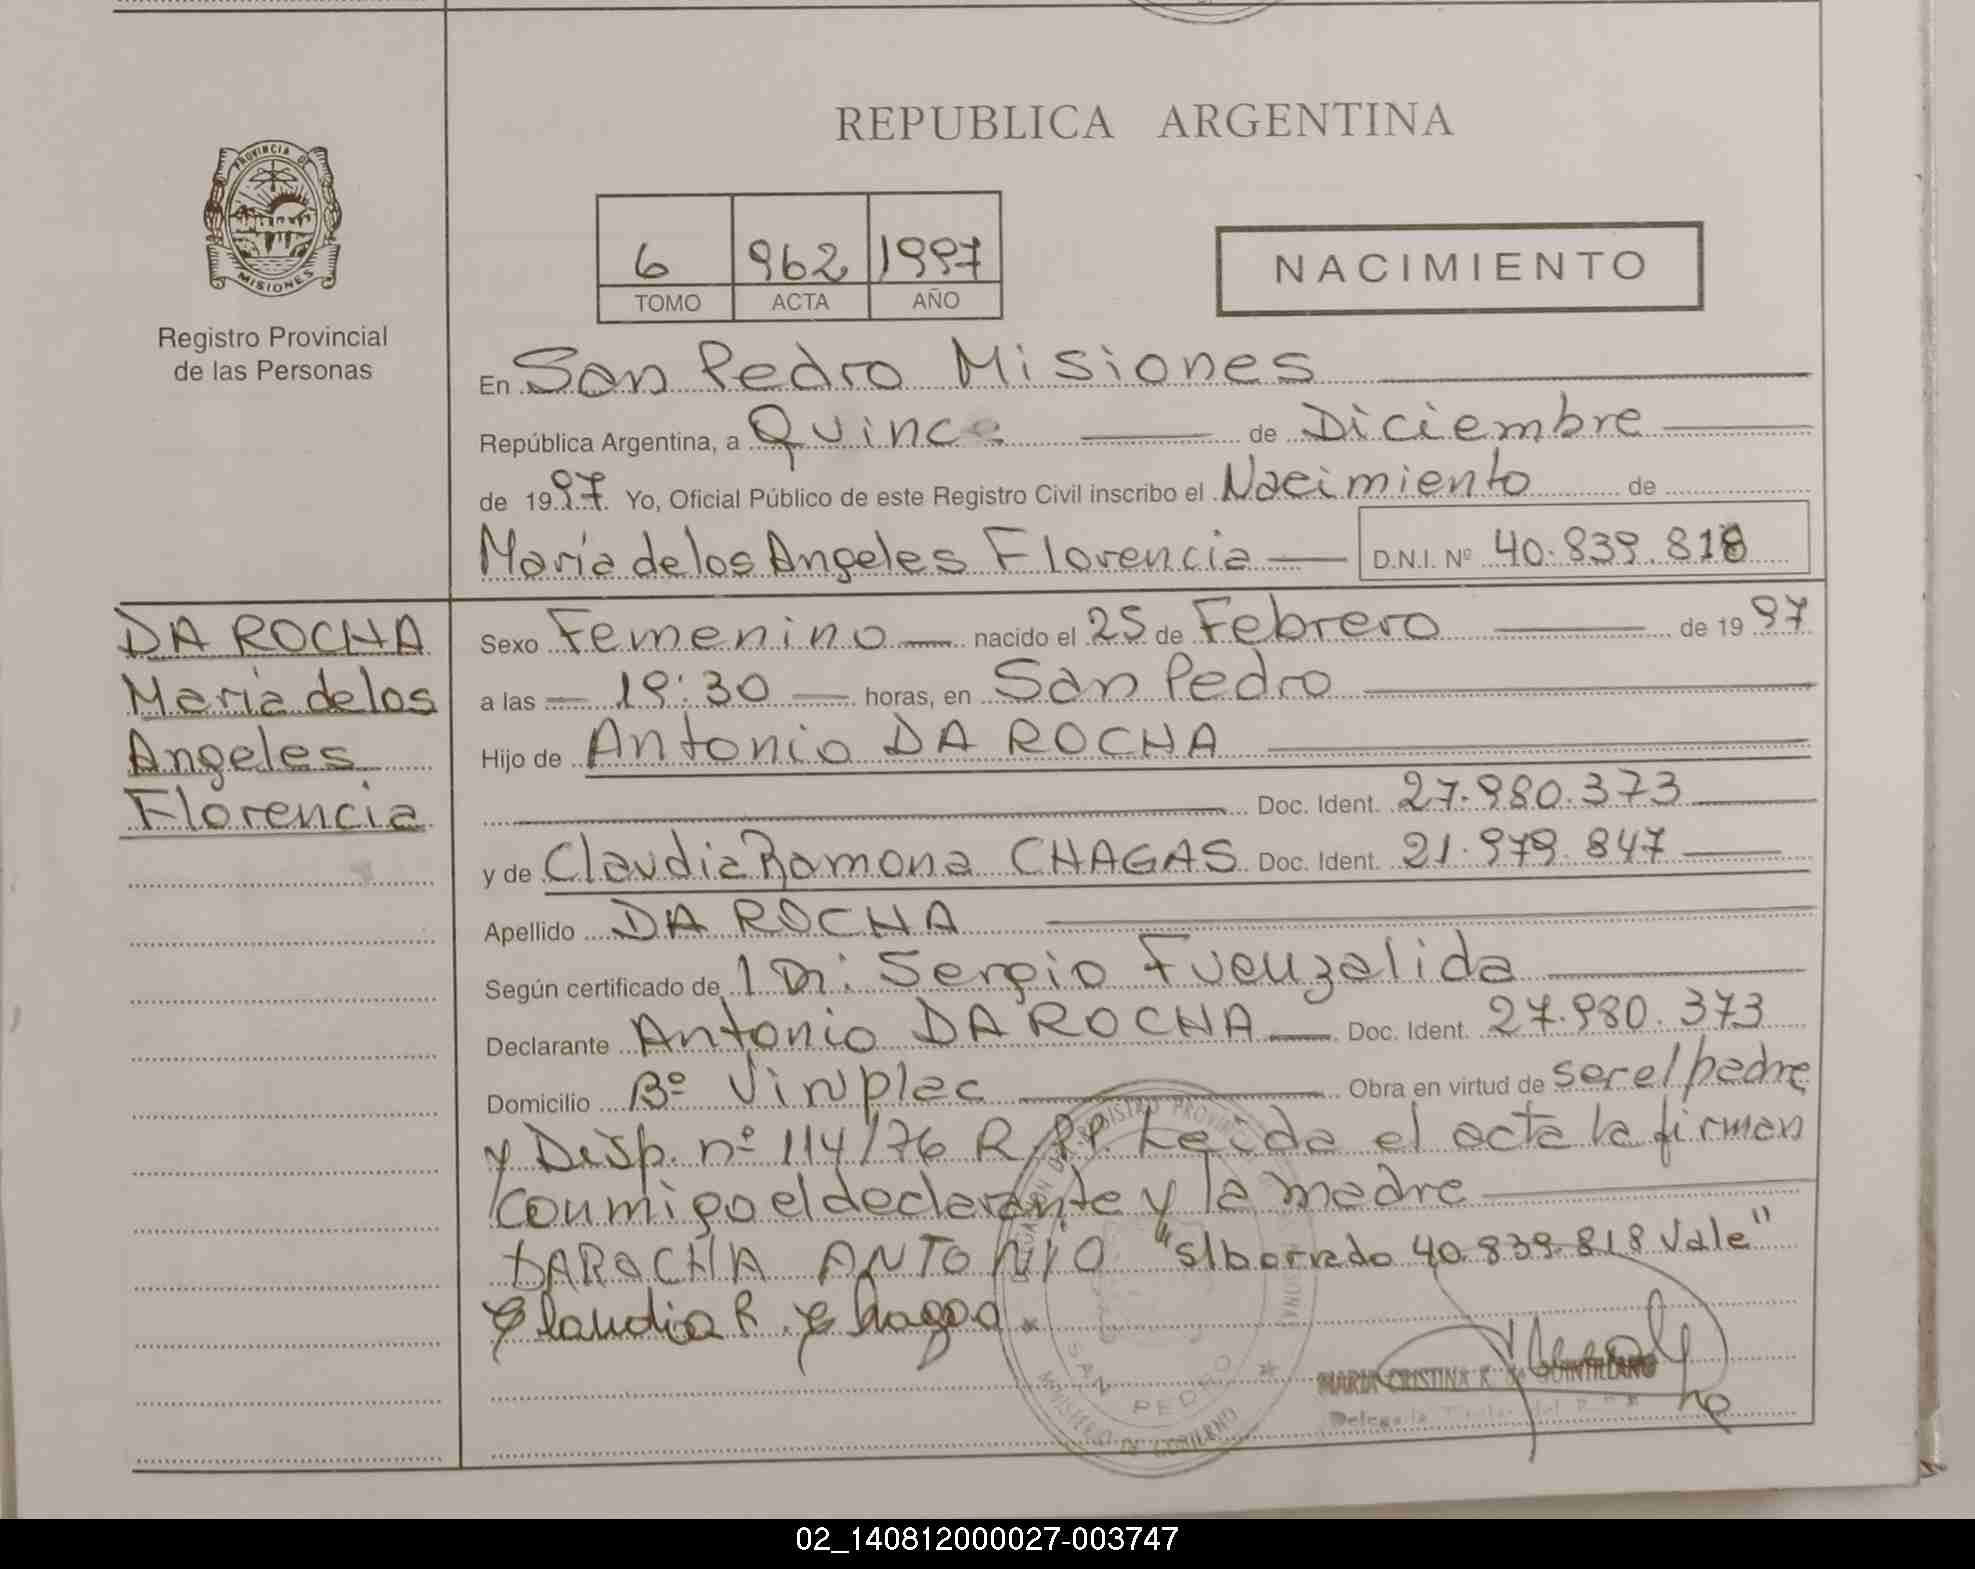 REPUBLICA ARGENTINA
PROVINCIA DE
MISIONES
Registro Provincial
de las Personas
6 962 1997
TOMO ACTA AÑO
NACIMIENTO
En San Pedro Misiones
República Argentina, a Quince de Diciembre
de 1997. Yo, Oficial Público de este Registro Civil inscribo el Nacimiento de
María de los Angeles Florencia D.N.I. Nº 40.839.818
DA ROCHA
María de los
Angeles
Florencia
Sexo Femenino nacido el 25 de Febrero de 1997
a las 19:30 horas, en San Pedro
Hijo de Antonio DA ROCHA
Doc. Ident. 27.980.373
y de Claudia Ramona CHAGAS Doc. Ident. 21.979.847
Apellido DA ROCHA
Según certificado de Dr. Sergio Fuenzalida
Declarante Antonio DA ROCHA Doc. Ident. 27.980.373
Domicilio Bº Vinplac Obra en virtud de ser el padre
y Disp. nº 114/76 R.P.P. Leida el acta la firman
conmigo el declarante y la madre
DAROCHA ANTONIO "s/borrado 40.839.818 Vale"
Claudia R. Chagas
SAN PEDRO
MINISTERIO DE GOBIERNO
MARIA CRISTINA R. de QUINTILLANO
02_140812000027-003747